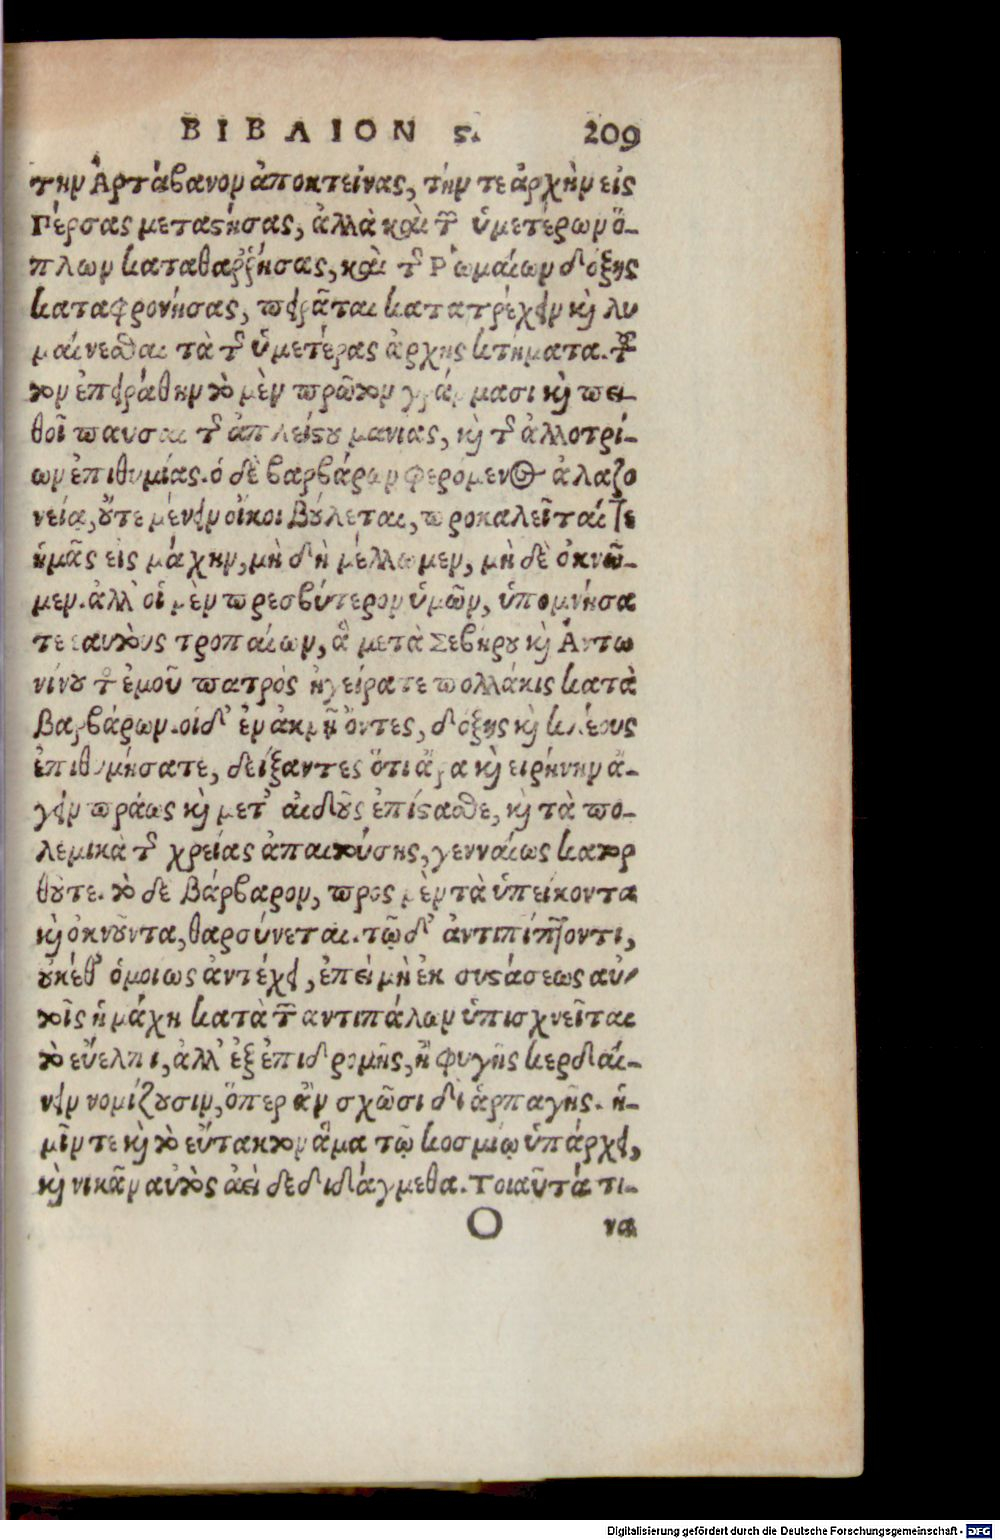 ΒΙΒΛΙΟΝ ϛ. 209
την Ἀρτάβανον ἀποκτείνας, τήν τε ἀρχὴν εἰς
Πέρσας μεταστήσας, ἀλλὰ καὶ τῶν ὑμετέρων ὅ-
πλων καταθαῤῥήσας, καὶ τῆς Ῥωμαίων δόξης
καταφρονήσας, πειρᾶται κατατρέχειν καὶ λυ
μαίνεσθαι τὰ τῆς ὑμετέρας ἀρχῆς κτήματα. τοῦ
τον ἐπειράθην τὸ μὲν πρῶτον γράμμασι καὶ πει-
θοῖ παυσαι τῆς ἀπλείστου μανιας, καὶ τῆς ἀλλοτρί-
ων ἐπιθυμίας. ὁ δὲ βαρβάρων φερόμενος ἀλαζο
νεία, οὔτε μένειν οἴκοι βούλεται, προκαλεῖταί τε
ἡμᾶς εἰς μάχην, μὴ δὴ μέλλωμεν, μὴ δὲ ὀκνῶ-
μεν. ἀλλ' οἱ μὲν πρεσβύτερον ὑμῶν, ὑπομνήσα
τε ἑαυτοὺς τροπαίων, ἃ μετὰ Σεβήρου καὶ Ἀντω
νίνου τοῦ ἐμοῦ πατρὸς ἠγείρατε πολλάκις κατὰ
βαρβάρων. οἱ δ' ἐν ἀκμῇ ὄντες, δόξης καὶ κλέους
ἐπιθυμήσατε, δείξαντες ὅτι ἄρα καὶ ειρήνην ἄ-
γειν πράως καὶ μετ' αἰδοῦς ἐπίστασθε, καὶ τὰ πο-
λεμικὰ τῆς χρείας ἀπαιτούσης, γενναίως κατορ
θοῦτε. τὸ δὲ βάρβαρον, προς μὲν τὰ ὑπείκοντα
καὶ ὀκνοῦντα, θαρσύνεται. τῷ δ' ἀντιπίπτοντι,
οὐκέθ' ὁμοιως ἀντέχει, ἐπεὶ μὴ ἐκ συστάσεως αὐ-
τοῖς ἡ μάχη κατὰ τῶν αντιπάλων ὑπισχνεῖται
τὸ εὔελπι, ἀλλ' ἐξ ἐπιδρομῆς, ἢ φυγῆς κερδαί-
νειν νομίζουσιν, ὅπερ ἂν σχῶσι δι ἁρπαγῆς. ἡ-
μῖν τε καὶ τὸ εὔτακτον ἅμα τῷ κοσμίῳ ὑπάρχει,
καὶ νικᾶν αὐτοὺς ἀεὶ δεδιδάγμεθα. Τοιαῦτά τι-
O να
Digitalisierung gefördert durch die Deutsche Forschungsgemeinschaft - DFG